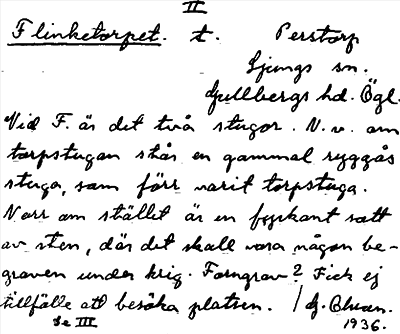 II
Flinketorpet. t. Perstorp
Ljungs sn.
Gullbergs hd. Ögl.
Vid F. är det två stugor. N.v. om
torpstugan står en gammal ryggås
stuga, som förr varit torpstuga.
Norr om stället är en fyrkant satt
av sten, där det skall vara någon be-
graven under krig. Forngrav? Fick ej
tillfälle att besöka platsen. / G.
Se III 1936.